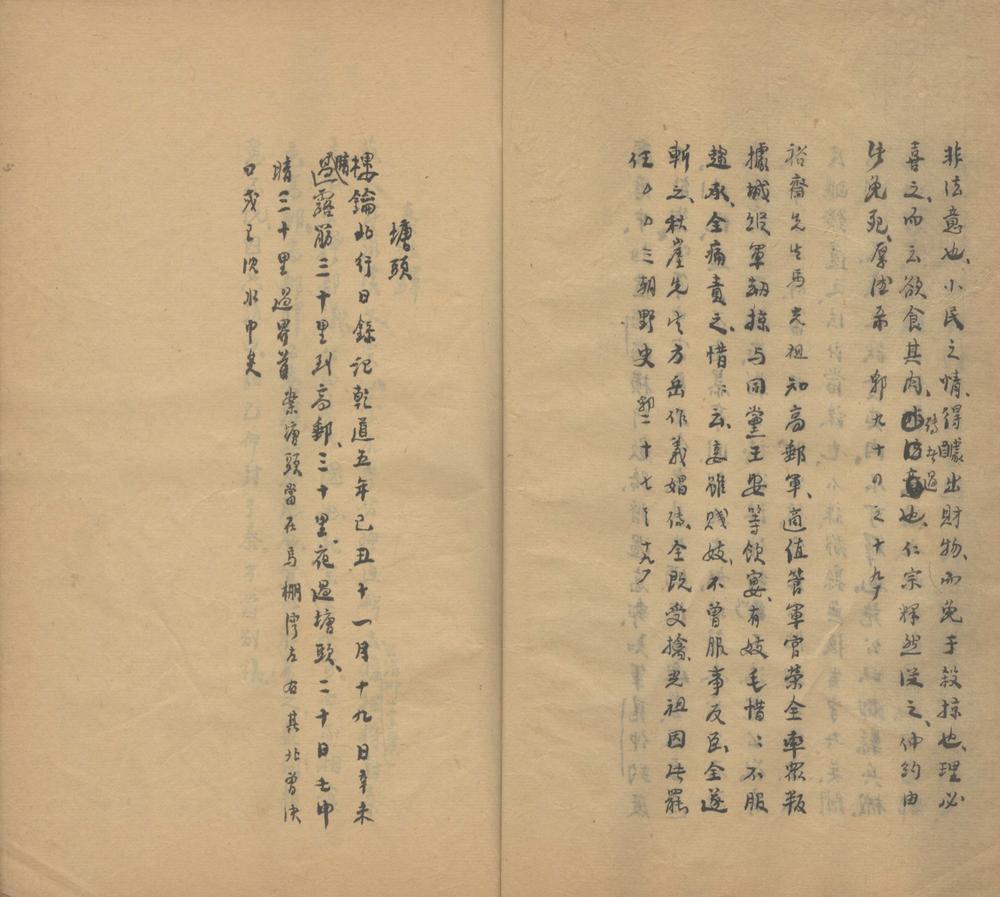 非法意也、小民之情、得醵出財物、而免于殺掠也、理必
喜之、而云欲食其肉、傳者過也、仁宗釋然從之、仲約由
此免死、厚德录
裕齋先生馬光祖知高郵軍、適值管軍官榮全率眾叛
據城縱軍劫掠与同黨王安等飲宴、有妓毛惜〻不服
趨承、全痛責之、惜〻云、妾雖賤妓、不曾服事反臣、全遂
斬之、秋崖先生方岳作義娼傳、全既受擒、光祖因此罷
任 三朝野史
塘頭
樓鑰北行日錄記乾道五年己丑十一月十九日辛未
晴過露筋三十里到高郵、三十里夜過塘頭、二十日壬申
晴三十里過界首 案塘頭當在馬棚灣左右其北曾決
口成 沈水中矣